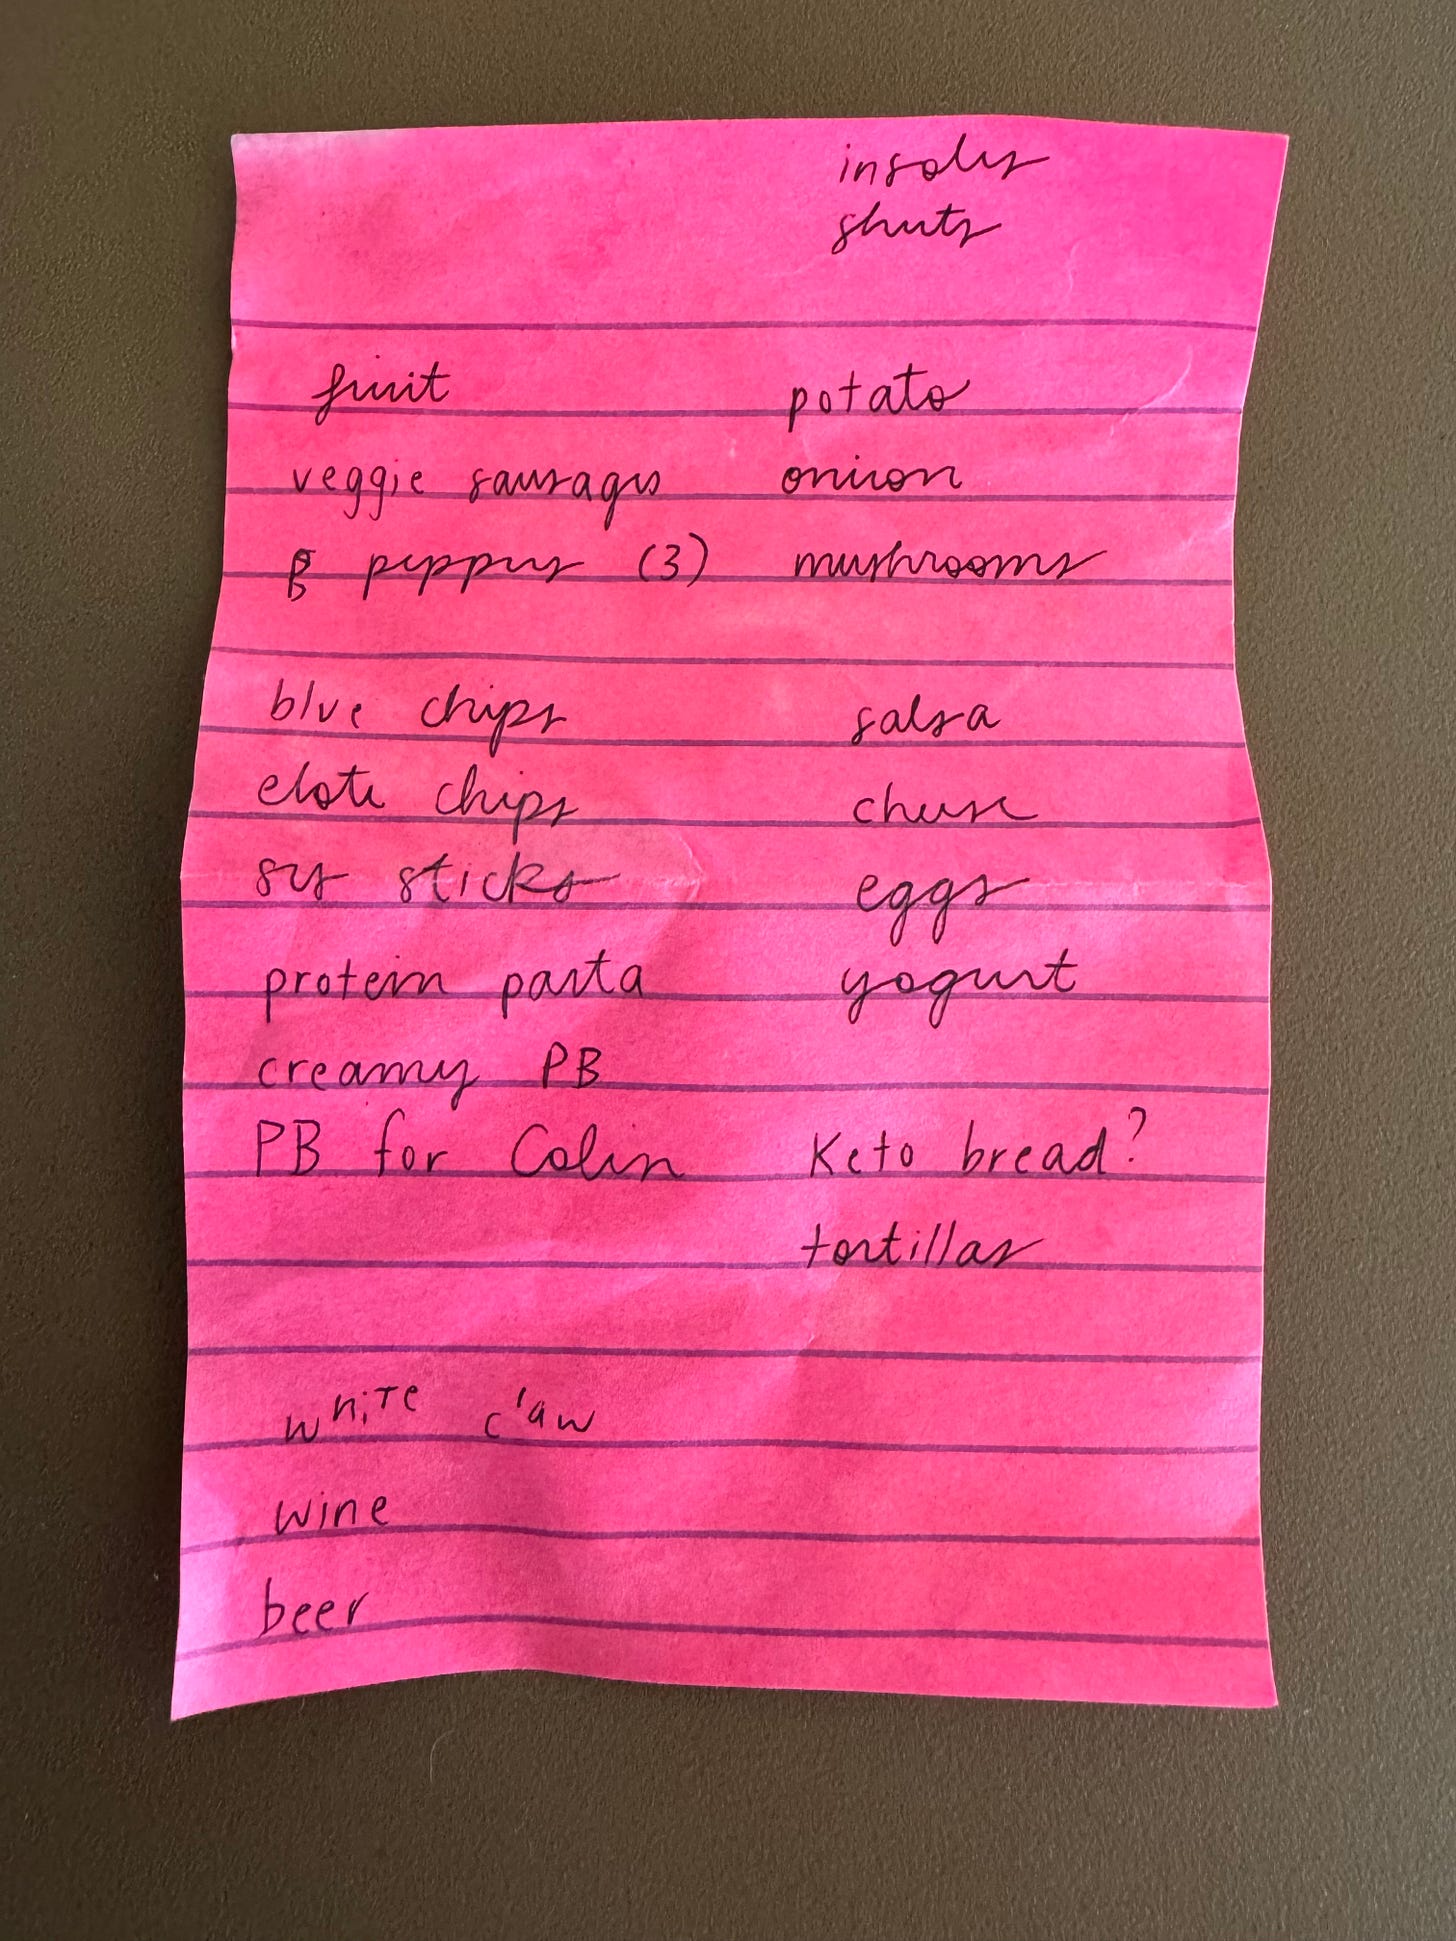 insoles
sheets
fruit potato
veggie sausages onion
B peppers (3) mushrooms
blue chips salsa
elote chips cheese
sticks eggs
protein pasta yogurt
creamy PB
PB for Colin Keto bread?
tortillas
white claw
wine
beer